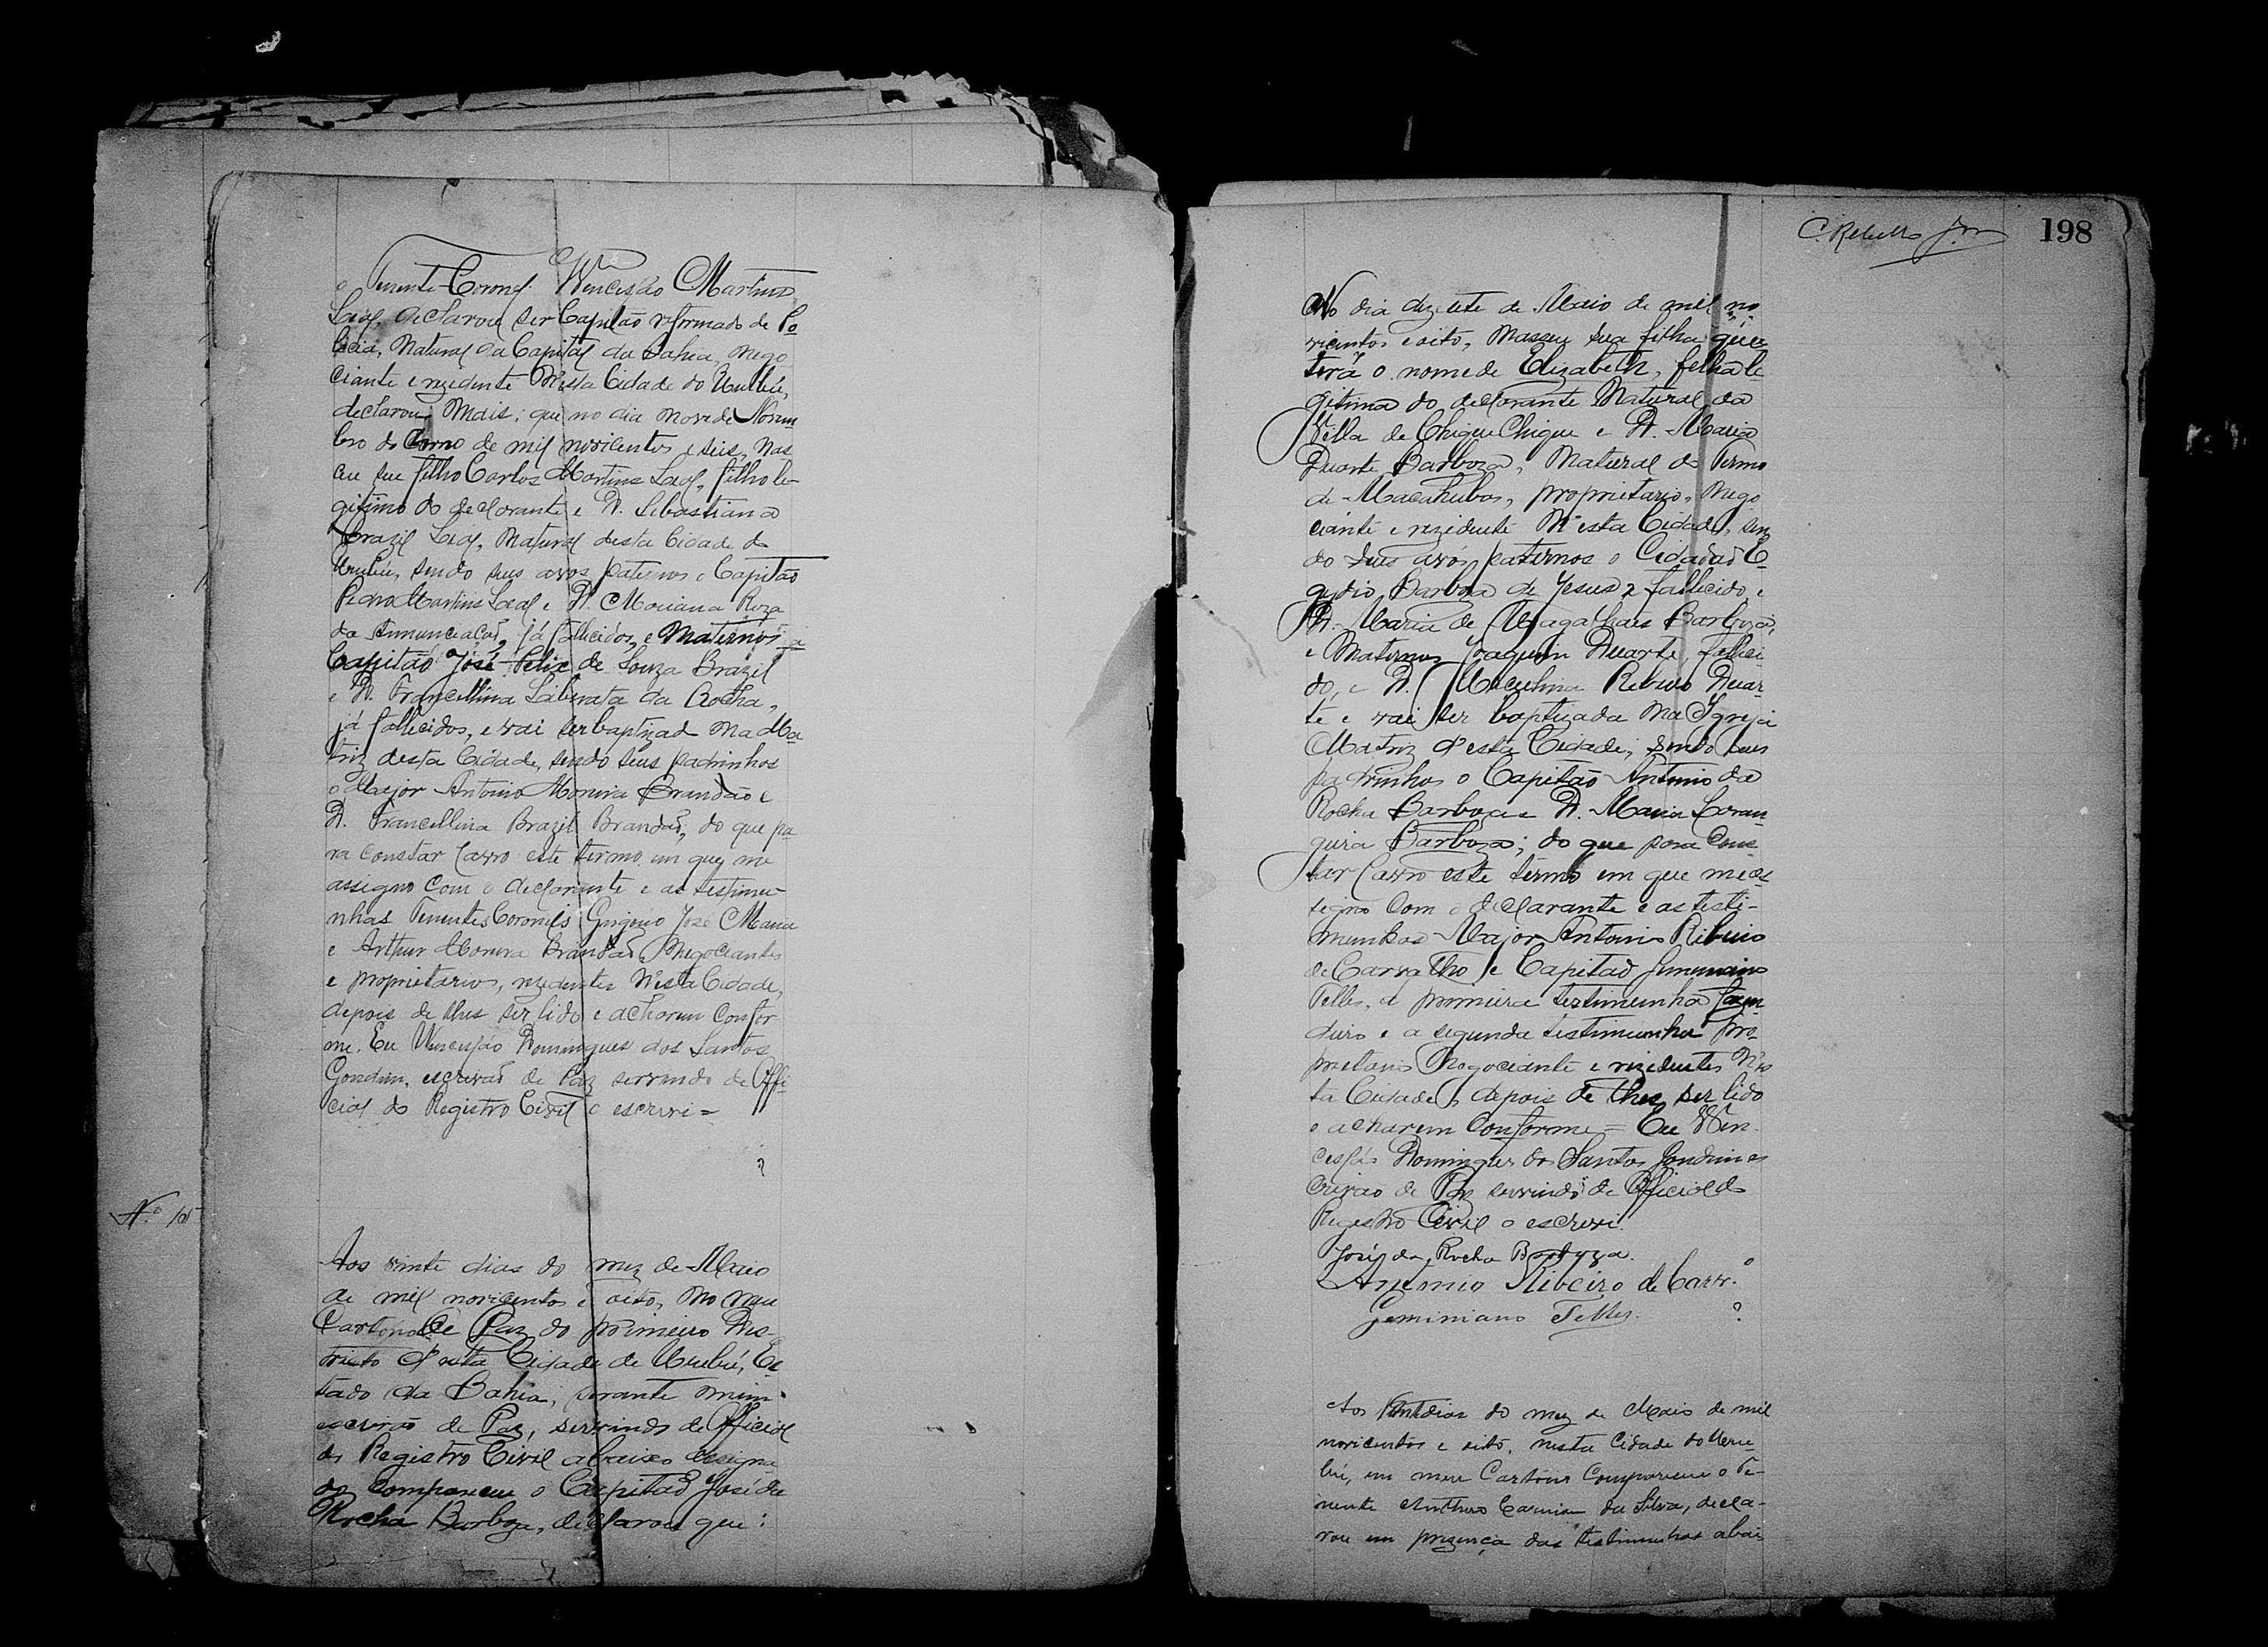 o Tenente Coronel Wencesláo Martins
Leal, declarou ser Capitão reformado de Po
licia, Natural da Capital da Bahia, nego
ciante e rezidente Nesta Cidade do Urubú,
declarou Mais: que no dia nove de Novem
bro do Anno de mil novicentos e seis, Nas
ceu seu filho Carlos Martins Leal, filho le
gitimo do declarante e D. Sebastiana
Brazil Leal, Natural desta Cidade do
Urubú, sendo seus avos paternos o Capitão
Pedro Martins Leal e D. Mariana Roza
da Annunciação, já fallecidos, e Maternos o
Capitão José Felix de Souza Brazil
e D. Francellina Liberata da Rocha,
já fallecidos, e vai ser baptizado na Ma
triz desta Cidade, sendo seus padrinhos
o Major Antonio Moreira Brandão e
D. Francellina Brazil Brandão, do que pa
ra constar lavro este termo em que me
assigno com o declarante e as testimu
nhas Tenentes Coroneis José Maria
e Arthur Moreira Brandão, Negociantes
e proprietarios, rezidentes N'esta Cidade,
depois de lhes ser lido e acharem confor
me. Eu Wencesláo Domingues dos Santos
Gondim, escrivão de Paz servindo de Offi
cial do Registro Civil o escrevi =
N.º 105
Aos vinte dias do mez de Maio
de mil novicentos e oito, no meu
Cartorio de Paz do primeiro Dis-
tricto d'esta Cidade de Urubú, Es
tado da Bahia, perante mim
escrivão de Paz, servindo de Official
do Registro Civil abaixo assigna
do compareceu o Capitão José da
Rocha Barboza, declarou que:
C. Rebello Jor 198
No dia dizesete de Maio de mil no
vicentos e oito, Nasceu sua filha que
terá o nome de Elizabeth, filha le
gitima do declarante Natural da
Villa de Chique Chique e D. Maria
Duarte Barboza, Natural do Termo
de Macahubas, proprietario, Nego
ciante e rezidente N'esta Cidade, sen
do seus avós paternos o Cidadão E
gydio Barboza de Jesus, fallecido, e
D. Maria de Magalhaes Barboza,
e Maternos Joaquim Duarte, falleci
do, e D. Ribeiro Duar
te e vai ser baptizada na Igreja
Matriz d'esta Cidade, sendo seus
padrinhos o Capitão Antonio da
Rocha Barboza e D. Maria
Barboza; do que para cons
tar lavro este termo em que me as
signo com o declarante e as testi-
munhas Major Antonio Ribeiro
de Carvalho e Capitão Geminiano
Telles, a primeira testimunha fazen
deiro e a segunda testimunha pro-
prietario Negociante e rezidentes N'es
ta Cidade, depois de lhes ser lido
e acharem conforme = Eu Wen
cesláo Domingues dos Santos Gondim es
crivão de Paz servindo de Official do
Registro Civil o escrevi.
José da Rocha Barboza.
Antonio Ribeiro de Carv.º
Geminiano Telles.
Aos dias do mez de Maio de mil
novicentos e oito, nesta Cidade do Uru
bú, em meu Cartorio compareceu o Te-
nente da Silva, decla-
rou em prezença das testimunhas abai-